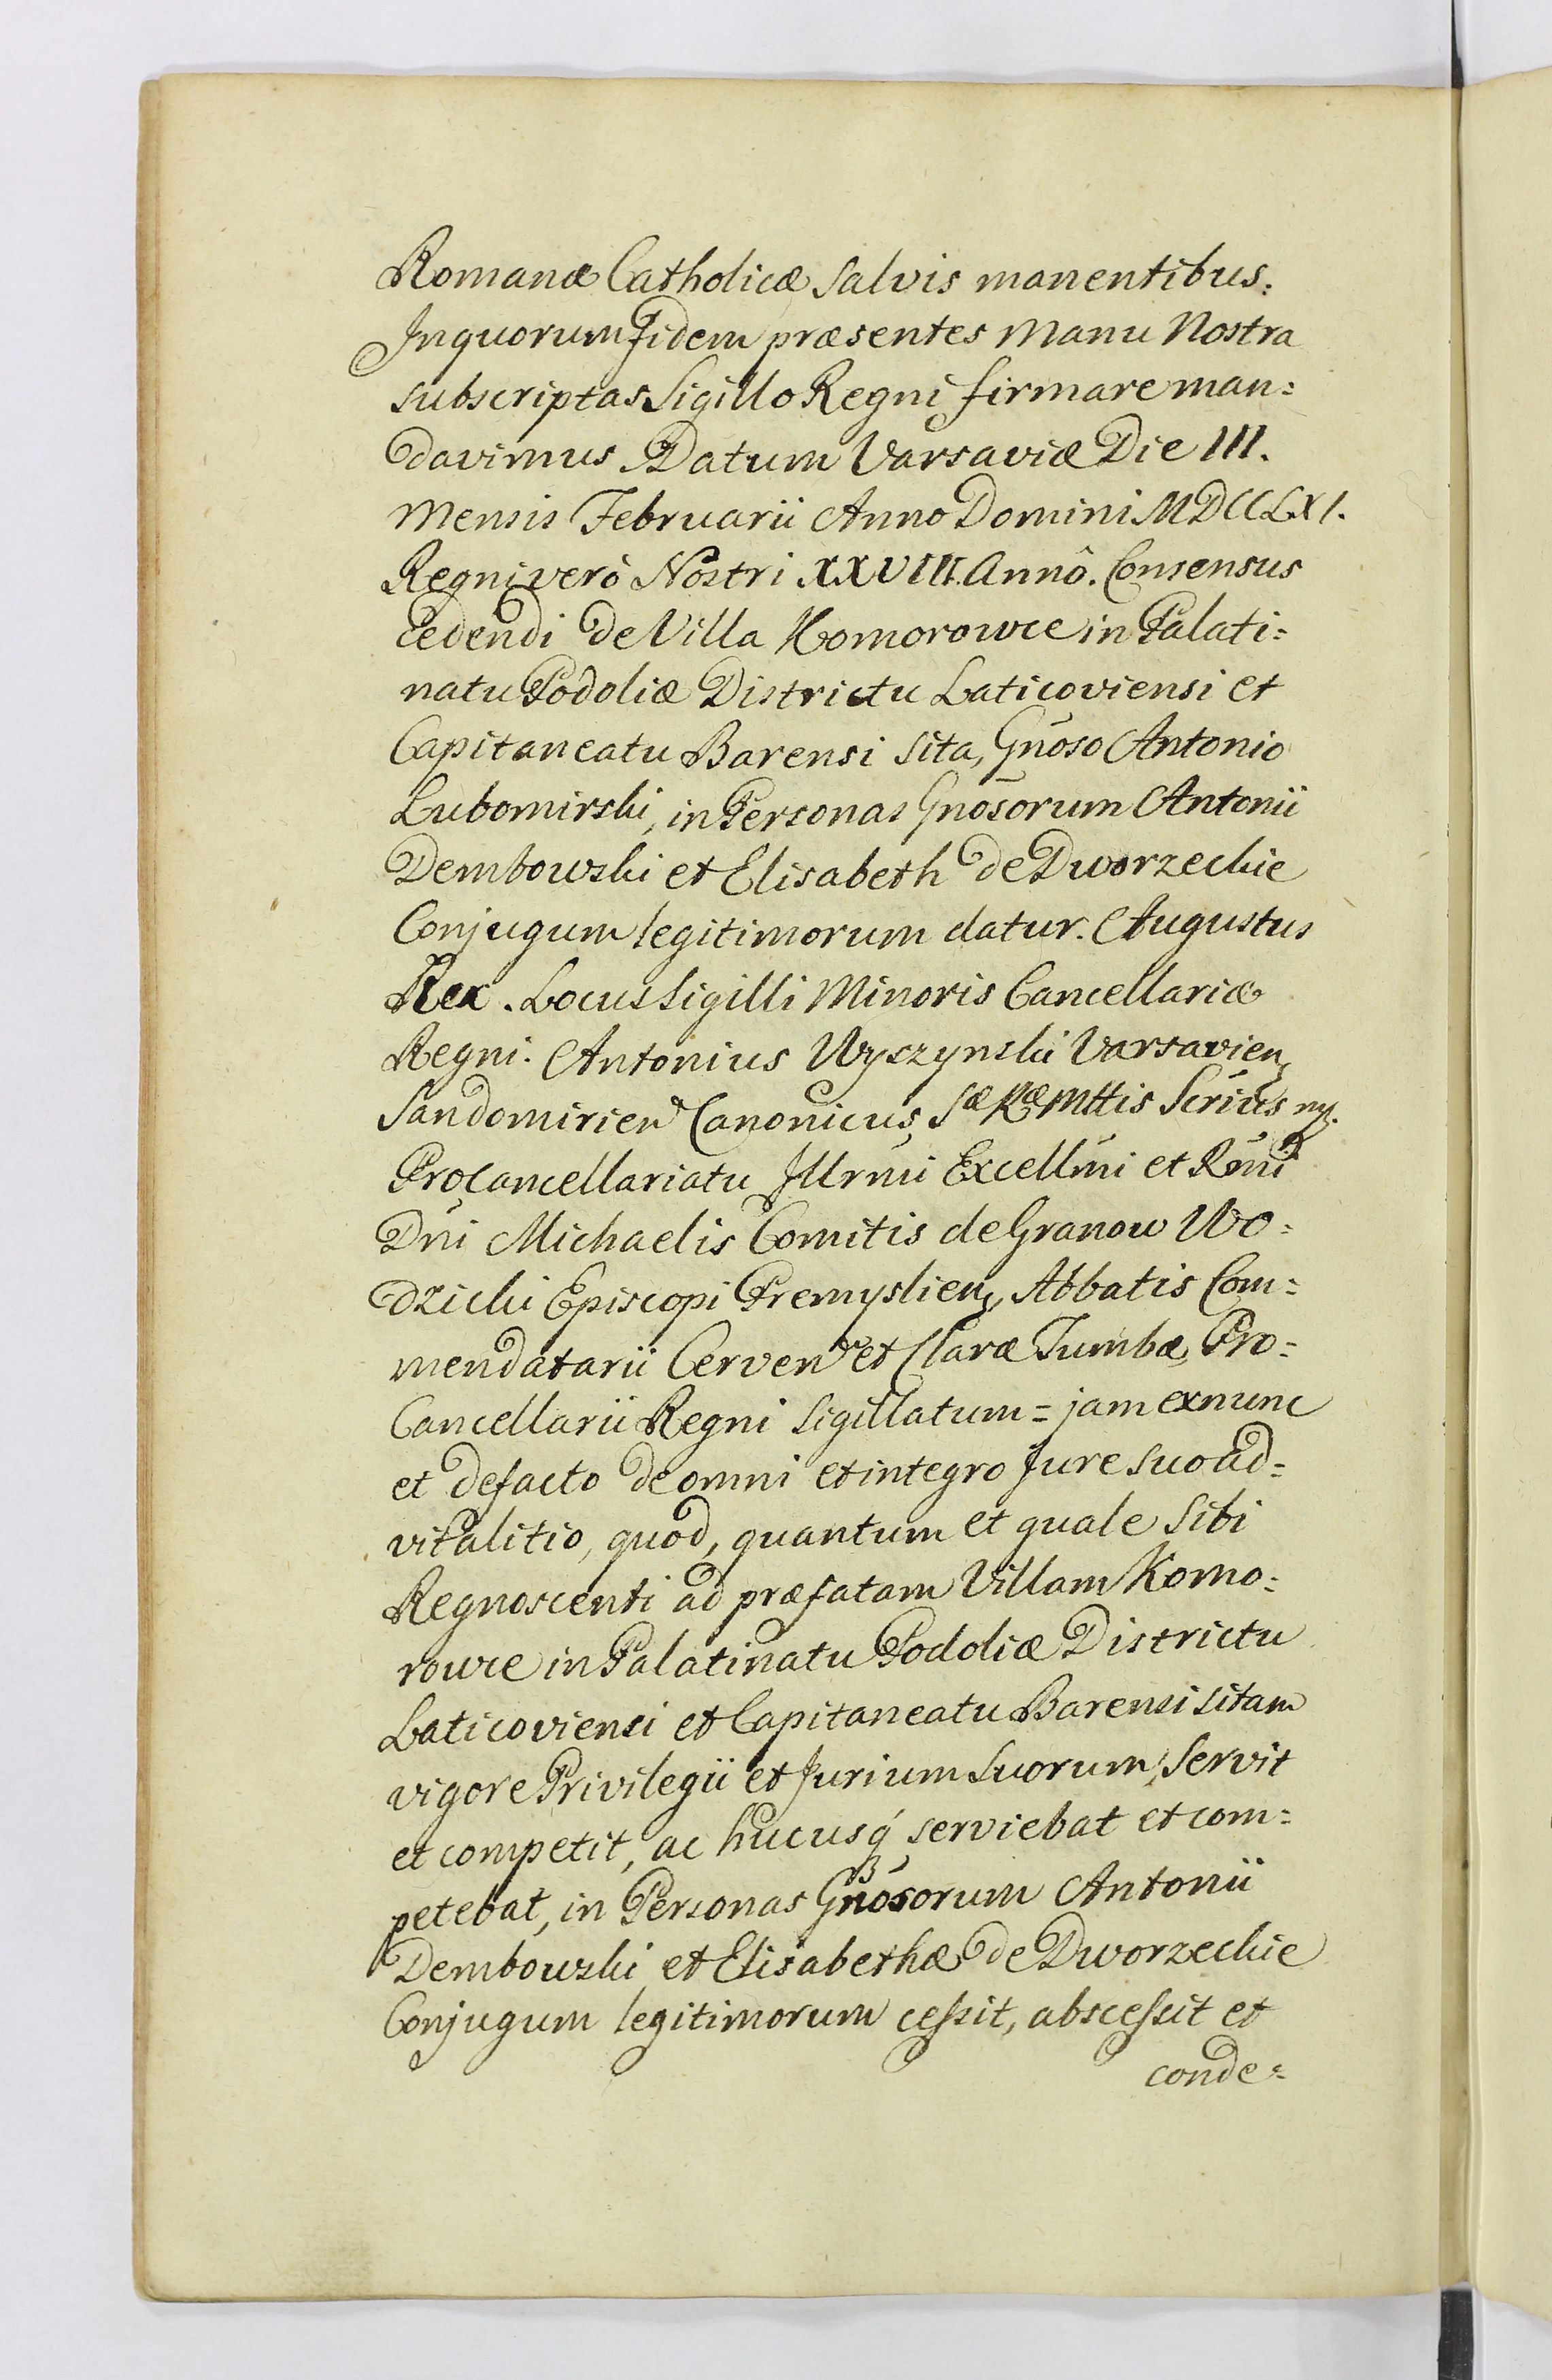 Romanæ Catholicæ salvis manentibus.
In quorum Fidem præsentes Manu Nostra
subscriptas Sigillo Regni firmare man=
davimus. Datum Varsaviæ Die III.
Mensis Februarii Anno Domini MDCCLXI.
Regni verò Nostri XXVIII. Annô. Consensus
cedendi de Villa Komorowce in Palati=
natu Podoliæ Districtu Laticoviensi et
Capitaneatu Barensi sita, Gnōso Antonio
Lubomirski, in Personas Gnōsorum Antonii
Dembowski et Elisabeth de Dworzeckie
Conjugum legitimorum datur. Augustus
Rex. Locus Sigilli Minoris Cancellariæ
Regni. Antonius Wyszynski Varsavien,
Sandomirien Canonicus, Sæ Ræ Mttis Scrius mp.
Procancellariatu Illrmi Excellmi et Rmi
Dni Michaelis Comitis de Granow Wo=
dzicki Episcopi Premyslien, Abbatis Com=
mendatarii Cerven et Claræ Tumbæ, Pro=
Cancellarii Regni sigillatum = jam exnunc
et defacto de omni et integro Jure suo ad=
vitalitio, quod, quantum et quale sibi
Regnoscenti ad præfatam Villam Komo=
rowce in Palatinatu Podoliæ Districtu
Laticoviensi et Capitaneatu Barensi sitam
vigore Privilegii et Jurium suorum servit
et competit, ac hucusq́ serviebat et com=
petebat, in Personas Gnōsorum Antonii
Dembowski et Elisabethæ de Dworzeckie
Conjugum legitimorum cessit, abscessit et
conde=